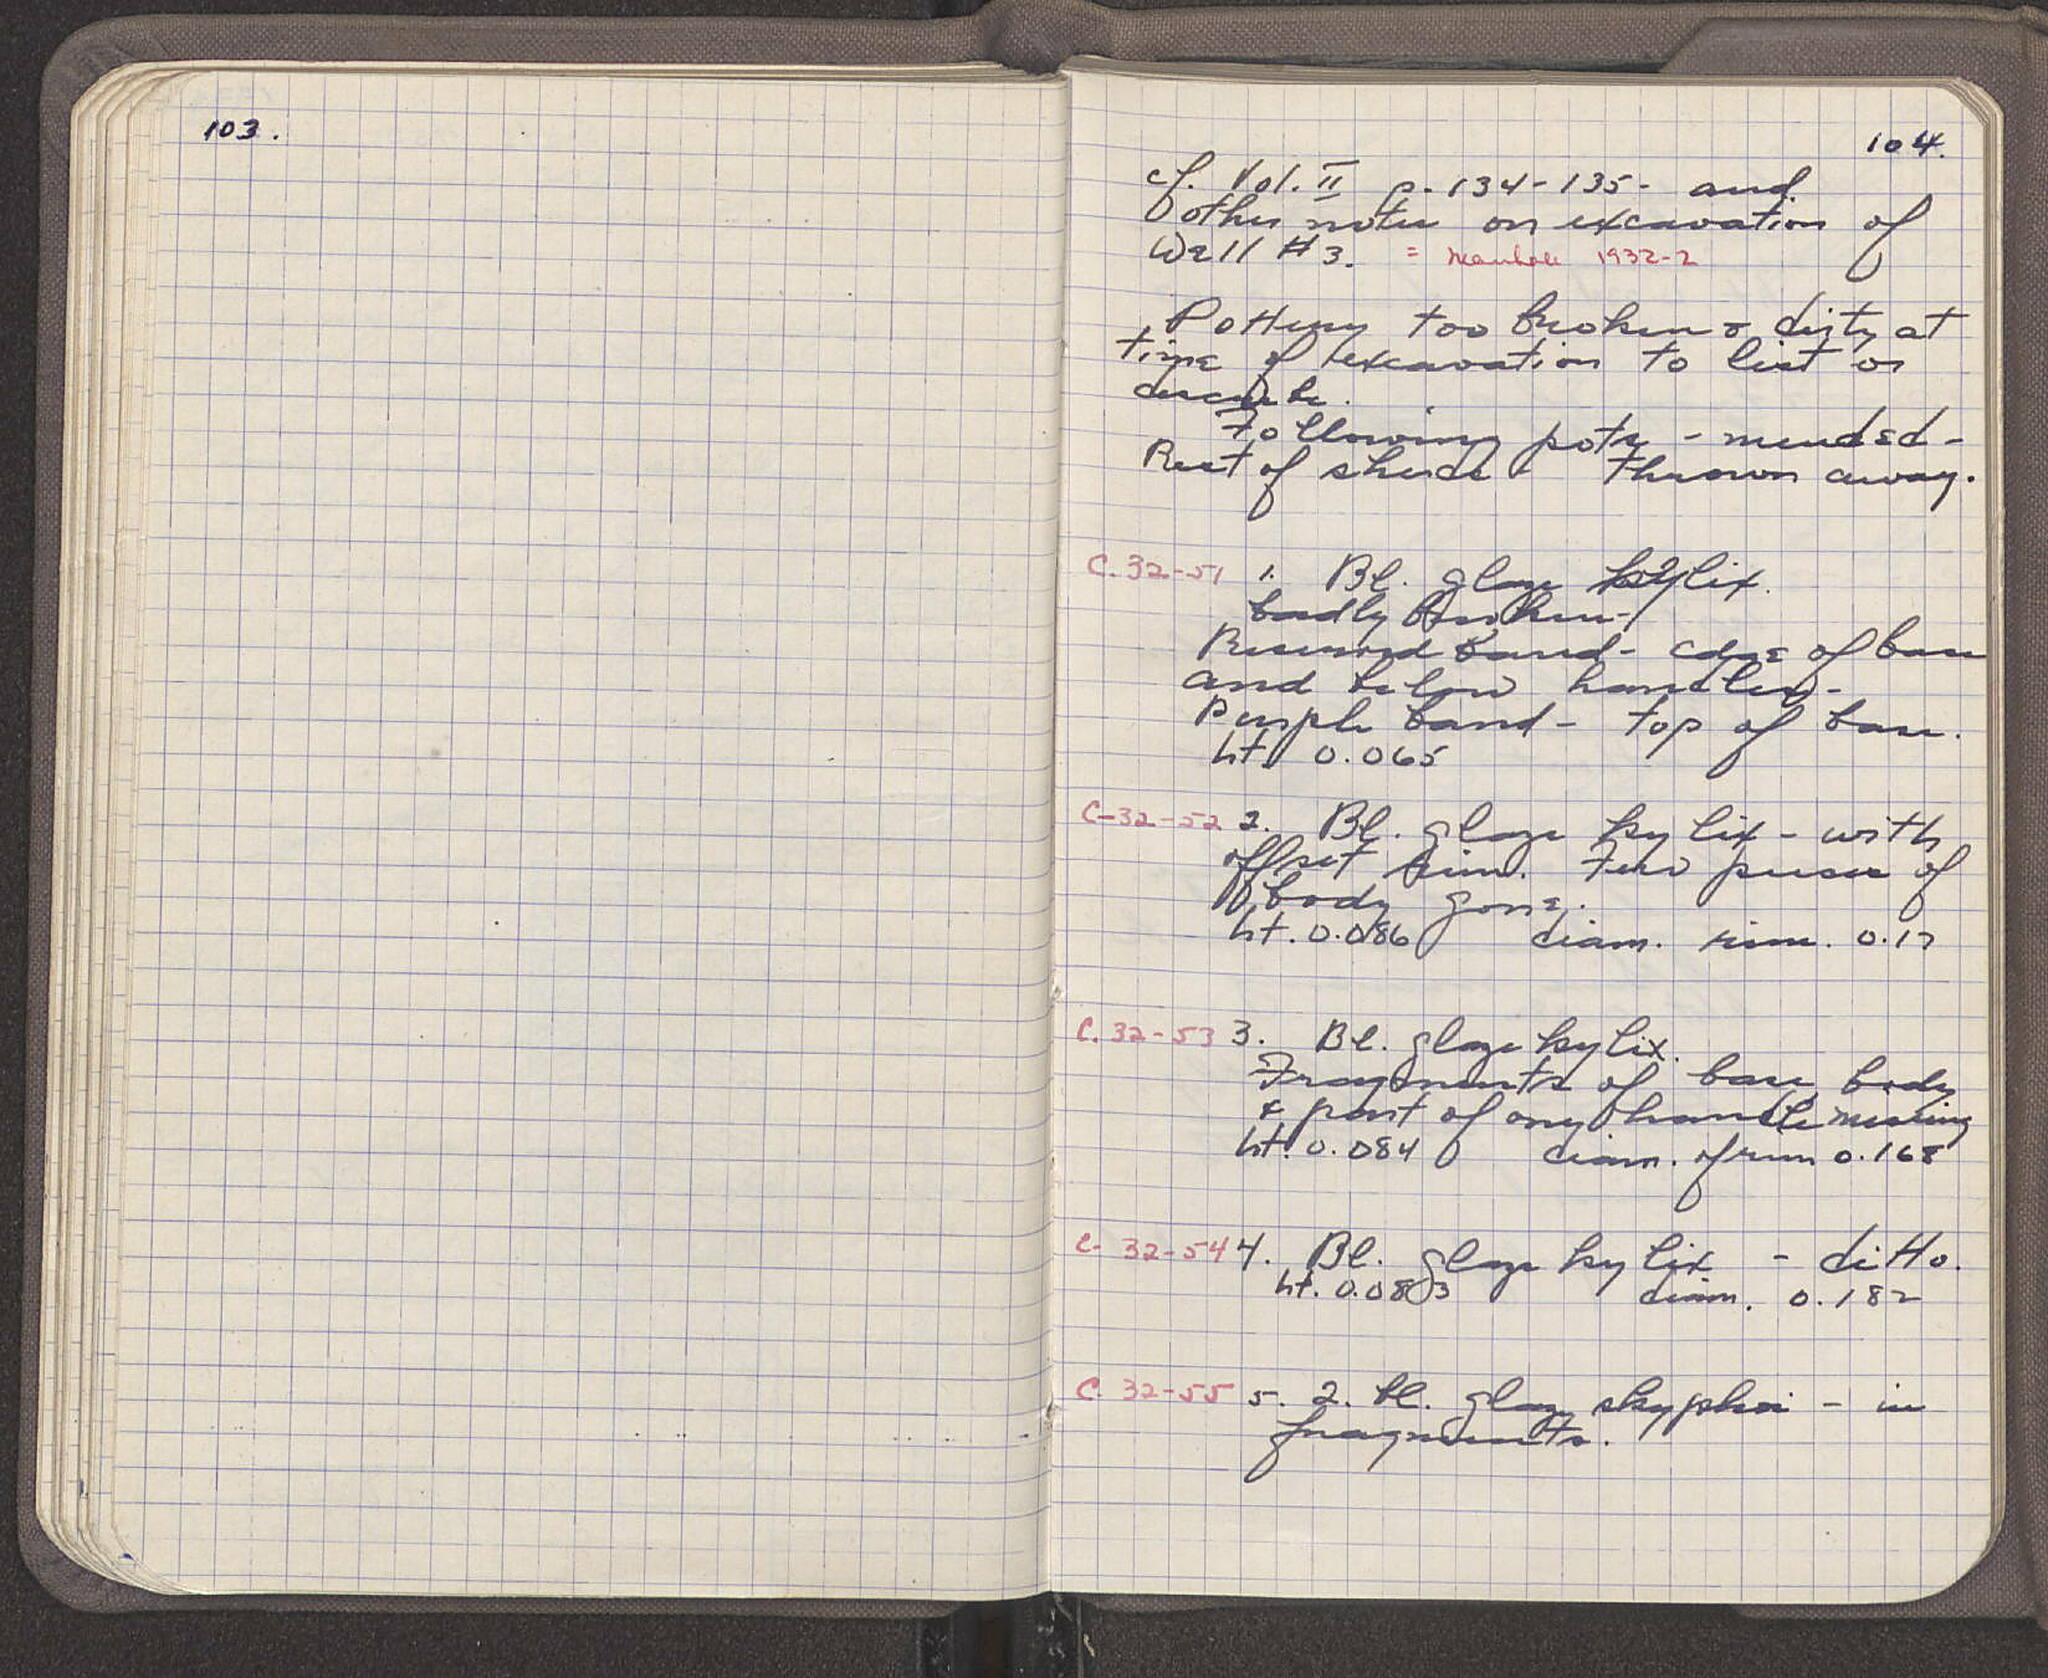 103.
104.
cf. Vol. II p. 134-135- and
other notes on excavation of
Well #3. = Manhole 1932-2
Pottery too broken & dirty at
time of excavation to list or
describe.
Following pots - mended -
Rest of sherds thrown away.
C. 32-51 1. Bl. glaze kylix.
badly broken -
Reserved band - edge of base
and below handles -
Purple band - top of base.
ht. 0.065
C-32-52 2. Bl. glaze kylix - with
offset rim. Few pieces of
body gone.
ht. 0.086 diam. rim. 0.17
C. 32-53 3. Bl. glaze kylix.
Fragments of base, body
& part of one handle missing
ht. 0.084 diam. of rim 0.168
C- 32-54 4. Bl. glaze kylix - ditto.
ht. 0.083 diam. 0.182
C. 32-55 5. 2. bl. glaze skyphoi - in
fragments.